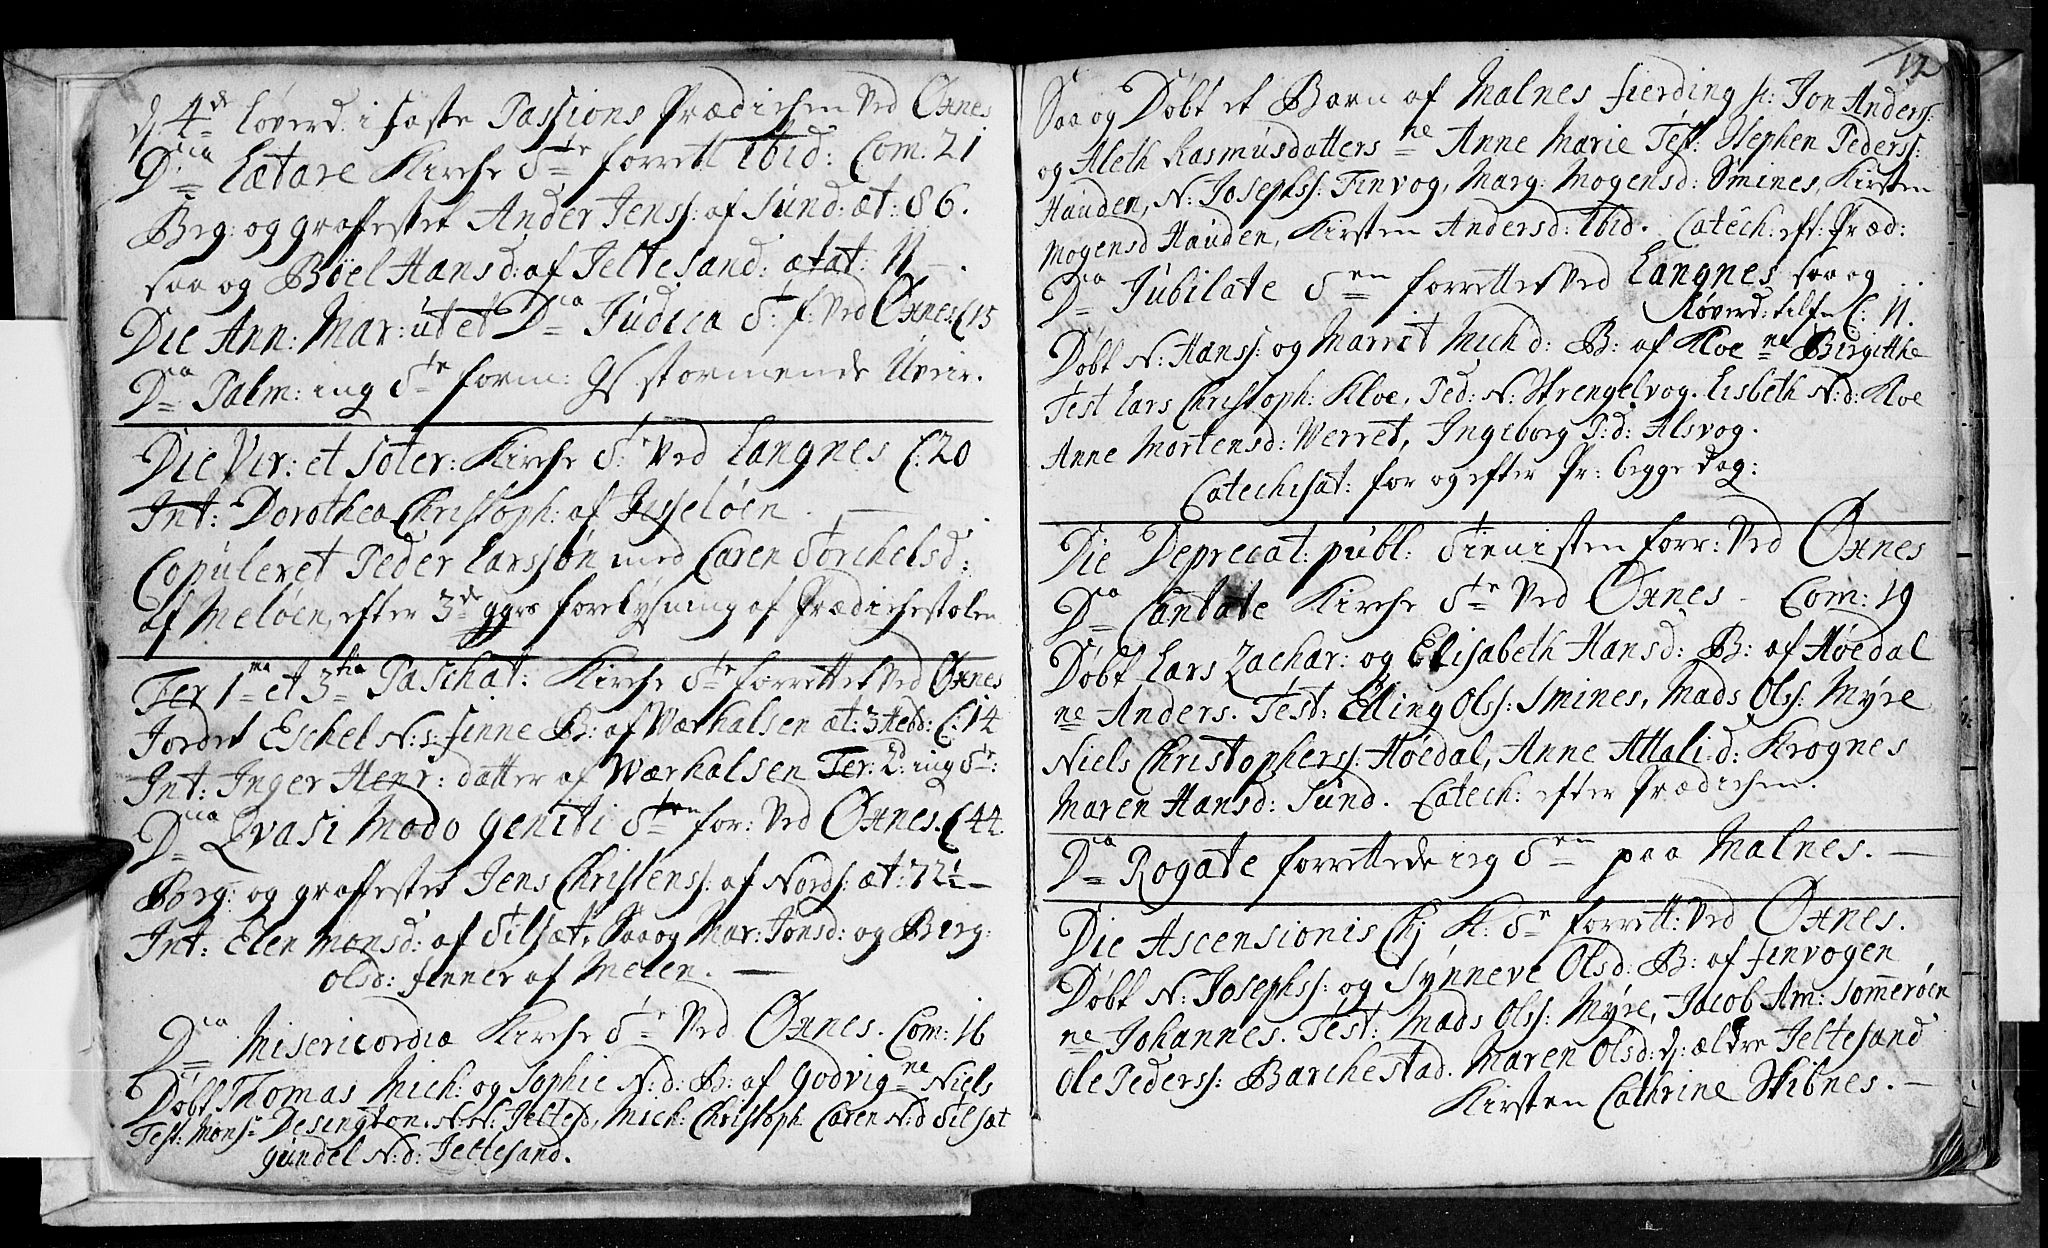 d 4de Løverd: i faste Passions Prædichen Ved Øxnes
Dnica Lætare Kirche Tte forrett Ibid: Com: 21
Beg: og grafestet Ander Jenss: af Sund: æt: 86.
saa og Biel Hansd: af Jeltesand: ætat: 11 –.
Die Ann: Mar: ut et Dca Judica T: f: Ved Øxnes C15
Dca Palm: ing Tte form: stormende Uveir.
Die Vir: et Soter: Kirche T: Ved Langnes C: 20
Int: Dorothea Christoph: af Jesseløen. —
Copuleret Peder Larssøn med Caren Torchelsd:
af Meløen, efter 3de forelysning af Prædichestolen
Fer 1ma et 3tia Paschat: Kirche Tte forrettet Ved Øxnes
Jordet Eschel N: s: finne B: af Værhalsen æt: 3 Hebd: C: 14
Int: Inger Henr: datter af Værhalsen Fer: 2: ing T:
Dnica Qvasi Modo geniti Tten for: Ved Øxnes. C 44.
Berg: og graffestet Jens Christenss: af Nords: æt: 72½ —
Int: Elen Monsd: af Tilsæt, Saa og Mar: Jonsd: og Berg:
Olsd: finner af Melen. —
Dca Misericordiæ Kirche Tte Ved Øxnes. Com: 16
Døbt Thomas Mich: og Sophie N: d: B: af Godvig ne Niels
Test: Mons: Desington. N: N: Jeltes, Mich: Christoph Caren N: d Tilsæt
Gundel N: d: Jeltesand.
12
Saa og Døbt et Barn af Malnes fierding f: Jon Anderss:
og Aleth Rasmusdatters ne Anne Marie Test: Stephen Pederss:
Hauden, N: Josephss: Finvog, Marg: Mogensd: Smines, Kirsten
Mogensd Hauden, Kirsten Andersd: Ibid. Catech: eft: Præd:
Dca Jubilate Ten forrettet Ved Langnes saa og
Løverd: tilf C: 11.
Døbt N: Hanss: og Marrit Mich d: B: af Kloe ne Birgithe
Test Lars Christoph: Kloe, Ped: N: Strengelvog. Lisbeth N: d: Kloe
Anne Mortensd: Werret, Ingeborg P: d: Alsvog.
Catechisat: for og efter Pr: begge dag:
Die Deprecat: publ: Tienisten forr: Ved Øxnes
Dca Cantate Kirche Tte Ved Øxnes – Com: 19
Døbt Lars Zachar: og Elisabeth Hansd: B: af Høedal
ne Anders. Test: Elling Olss: Smines, Mads Olss: Myre
Niels Christophers: Høedal, Anne Attali: d: Krognes
Maren Hansd: Sund. Catech: efter Prædichen.
Dca Rogate forrettede ieg Ten paa Malnes. —
Die Ascensionis Chj K: Te forrett: Ved Øxnes.
Døbt N: Josephss: og Synneve Olsd: B: af finvogen
ne Johannes. Test: Mads Olss: Myre, Jacob Am: Sommerøen
Ole Pederss: Barchestad. Maren Olsd: d: ældre Jeltesand
Kirsten Cathrine Skibnes. —